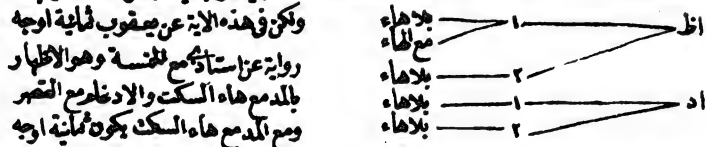 ولكن فى هذه الاية عن يعقوب ثمانية اوجه
رواية عن استاذى مع الخمسة وهو الاظهار
بالمد مع هاء السكت والادغام مع القصر
ومع المد مع هاء السكت يكون ثمانية اوجه
اظ ١ بلاهاء
مع الهاء
٢ بلاهاء
اد ١ بلاهاء
٢ بلاهاء